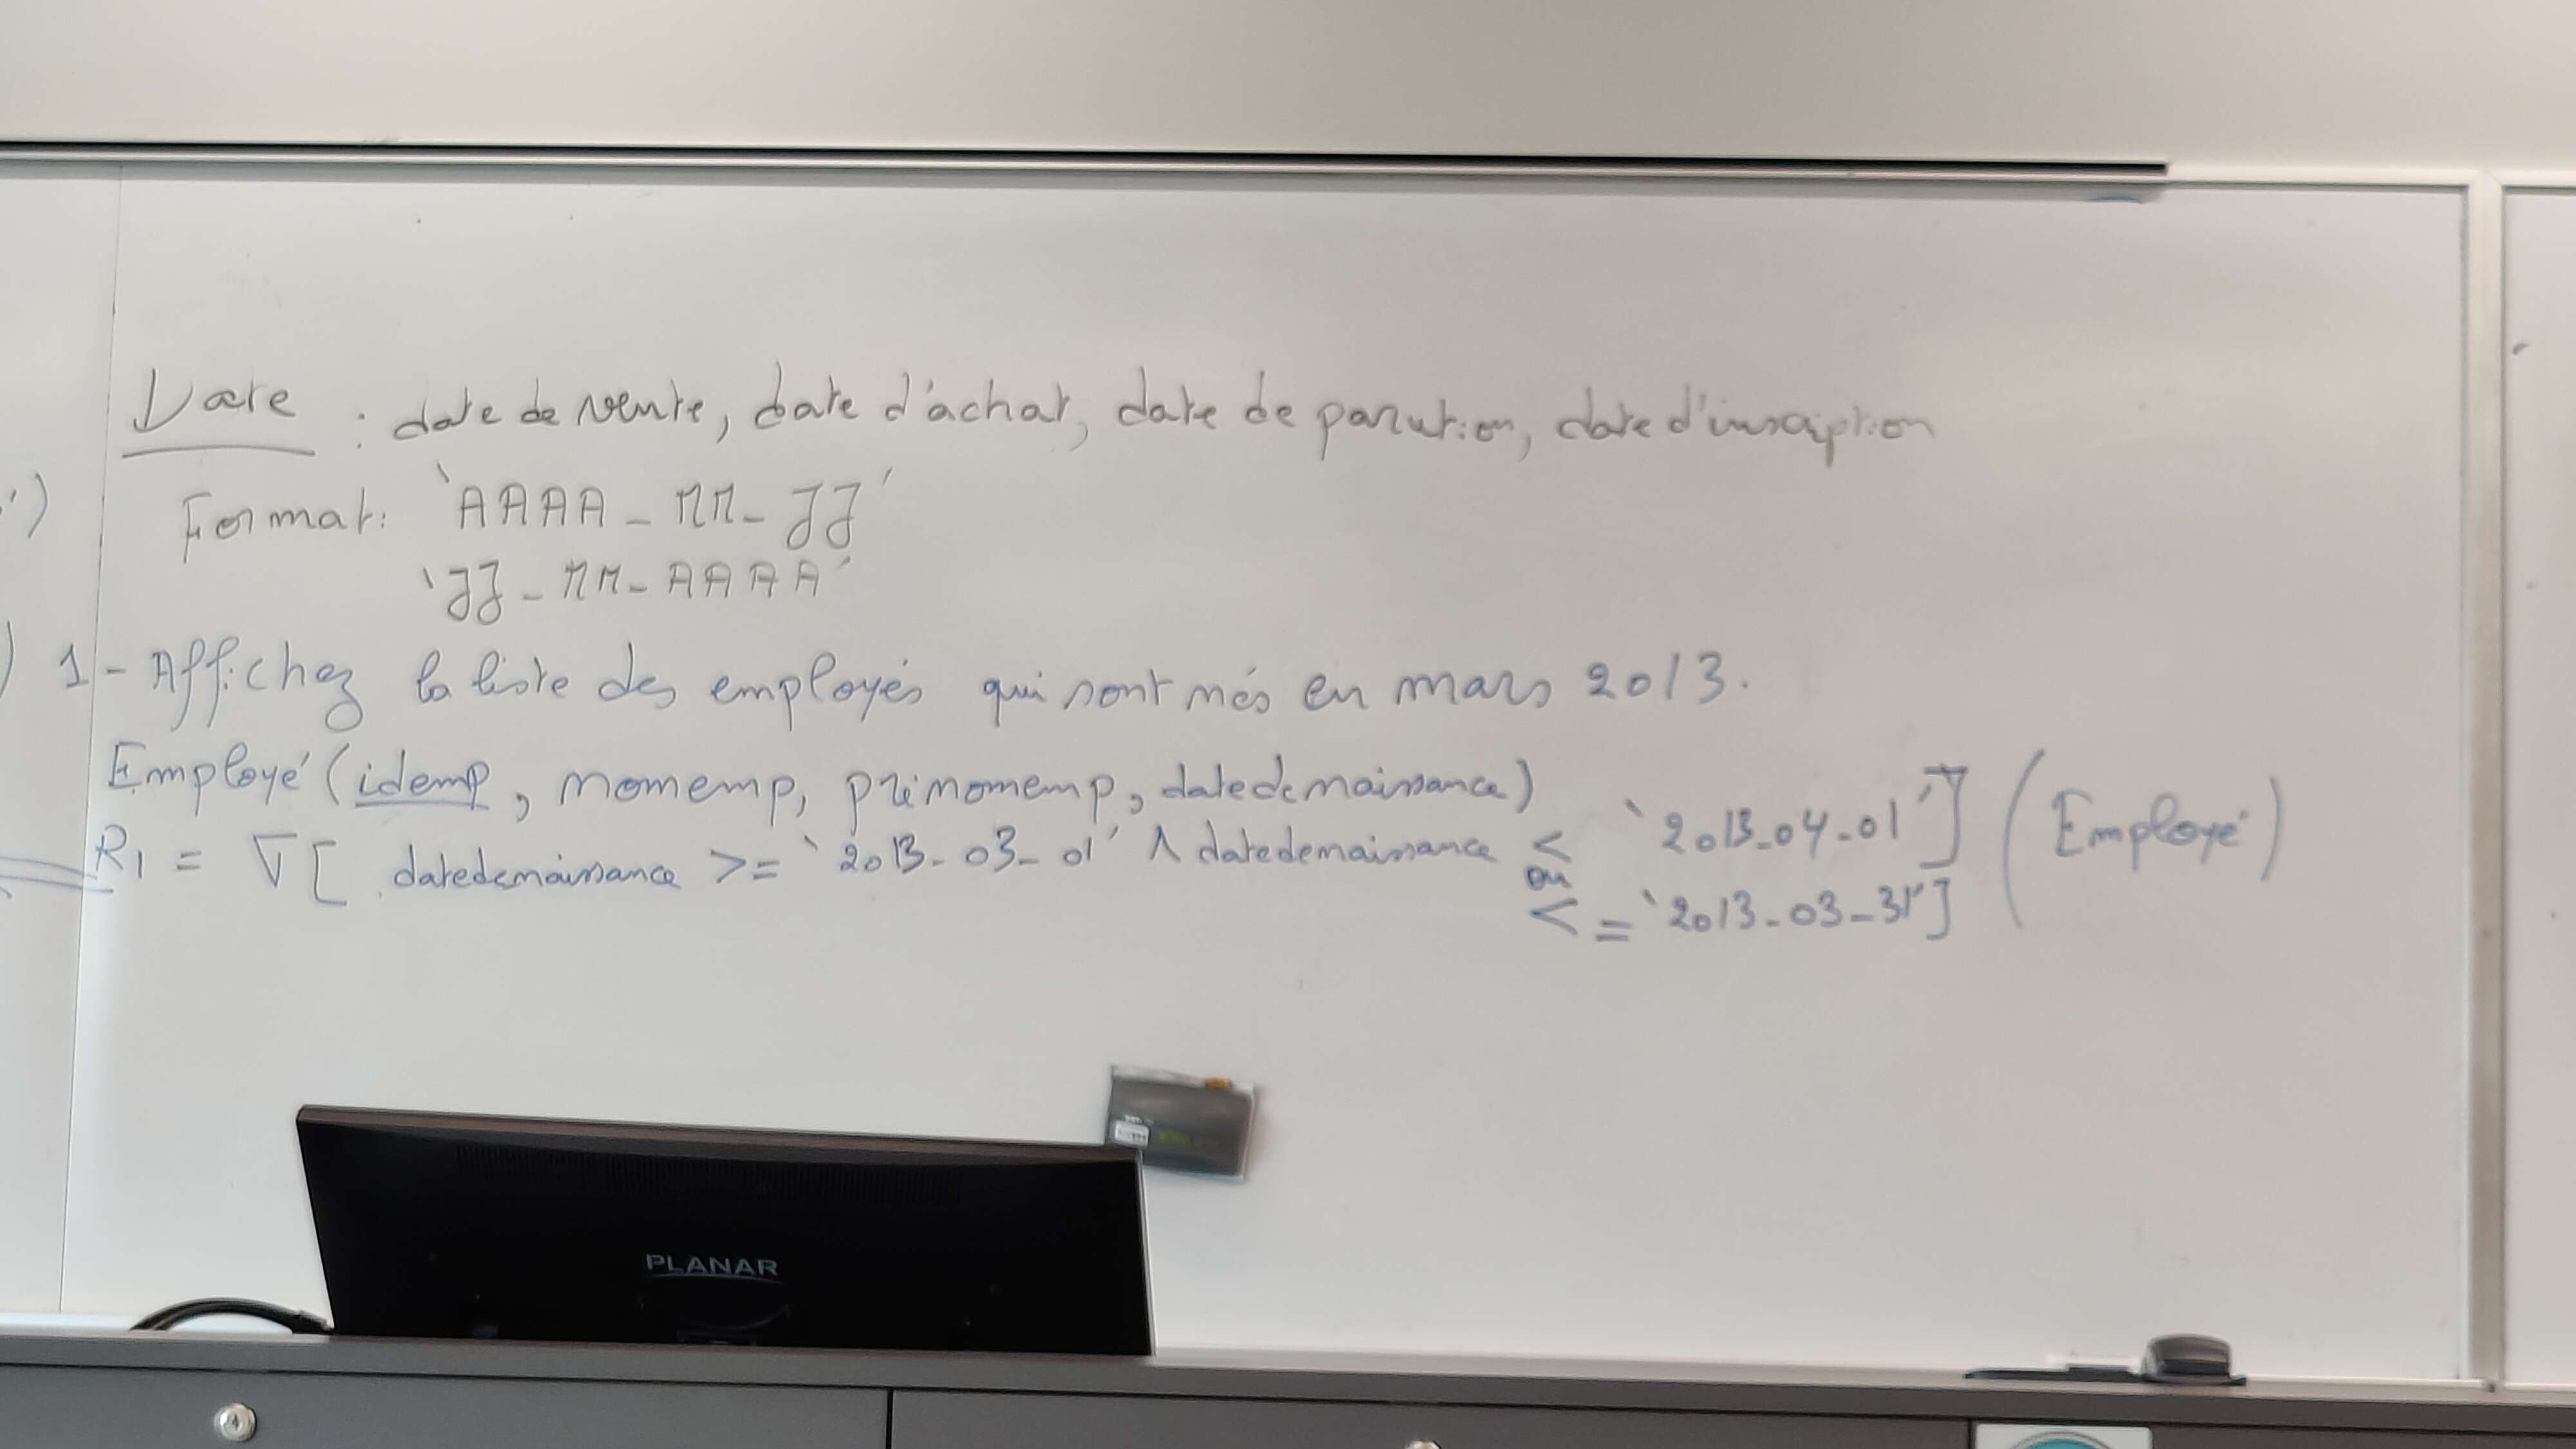 Date : date de vente, date d'achat, date de parution, date d'inscription
Format: 'AAAA-MM-JJ'
'JJ-MM-AAAA'
1- Affichez la liste des employés qui sont nés en mars 2013.
Employé (idemp, nomemp, prénomemp, datedenaissance)
R1 = σ[ datedenaissance >= '2013-03-01' ∧ datedenaissance < '2013-04-01'] (Employé)
ou
<= '2013-03-31']
PLANAR